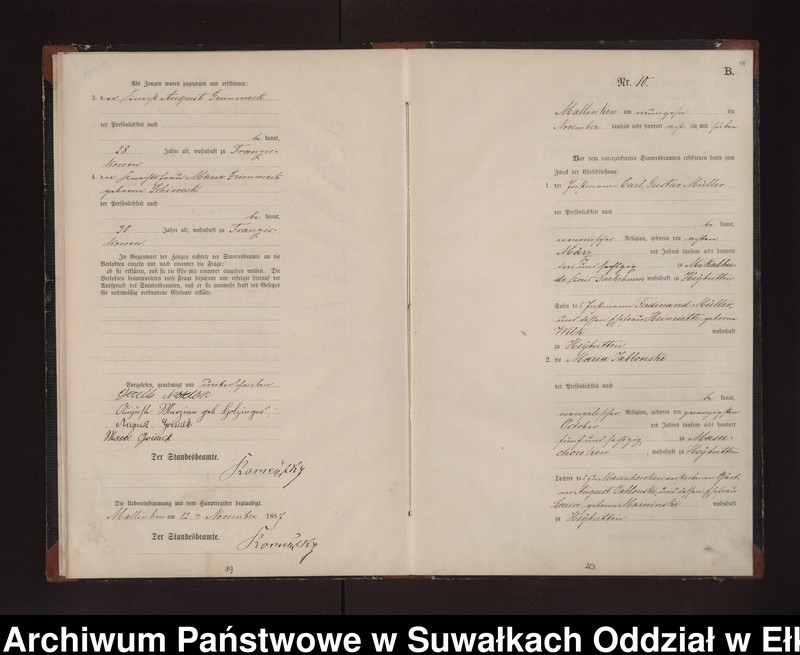 Als Zeugen waren zugezogen und erschienen:
3. der Knecht August Grimmeck
der Persönlichkeit nach
be kannt,
28 Jahre alt, wohnhaft zu Franzis-
kowen
4. die Knechtsfrau Marie Grimmeck
geborene
der Persönlichkeit nach
be kannt,
30 Jahre alt, wohnhaft zu Franzis-
kowen
In Gegenwart der Zeugen richtete der Standesbeamte an die
Verlobten einzeln und nach einander die Frage:
ob sie erklären, daß sie die Ehe mit einander eingehen wollen. Die
Verlobten beantworteten diese Frage bejahend und erfolgte hierauf der
Ausspruch des Standesbeamten, daß er sie nunmehr kraft des Gesetzes
für rechtmäßig verbundene Eheleute erkläre.
Vorgelesen, genehmigt und unterschrieben
Auguste geb
August
Der Standesbeamte.
Die Uebereinstimmung mit dem Hauptregister beglaubigt.
Mallinken am 12 ten November 1887
Der Standesbeamte.
19
B.
Nr. 10.
Mallinken am neunzehn ten
November tausend acht hundert acht zig und sieben
Vor dem unterzeichneten Standesbeamten erschienen heute zum
Zweck der Eheschließung:
1. der Instmann Carl Gustav Müller
der Persönlichkeit nach
be kannt,
evangelischer Religion, geboren den ersten
März des Jahres tausend acht hundert
und sechzig zu
Kreis Darkehmen wohnhaft zu Heybutten
Sohn des Instmann Ferdinand Müller,
und dessen Ehefrau Heinriette, geborene
Wilk wohnhaft
zu Heybutten
2. die Maria Jablonski
der Persönlichkeit nach
be kannt,
evangelischer Religion, geboren den zwanzigsten
October des Jahres tausend acht hundert
fünf und sechzig zu Masu-
chowken, wohnhaft zu Heybutten
Tochter des zu Masuchowken verstorbenen
August Jablonski, und dessen Ehefrau
Louise geborene Marninski wohnhaft
zu Heybutten
20
Archiwum Państwowe w Suwałkach Oddział w Ełk